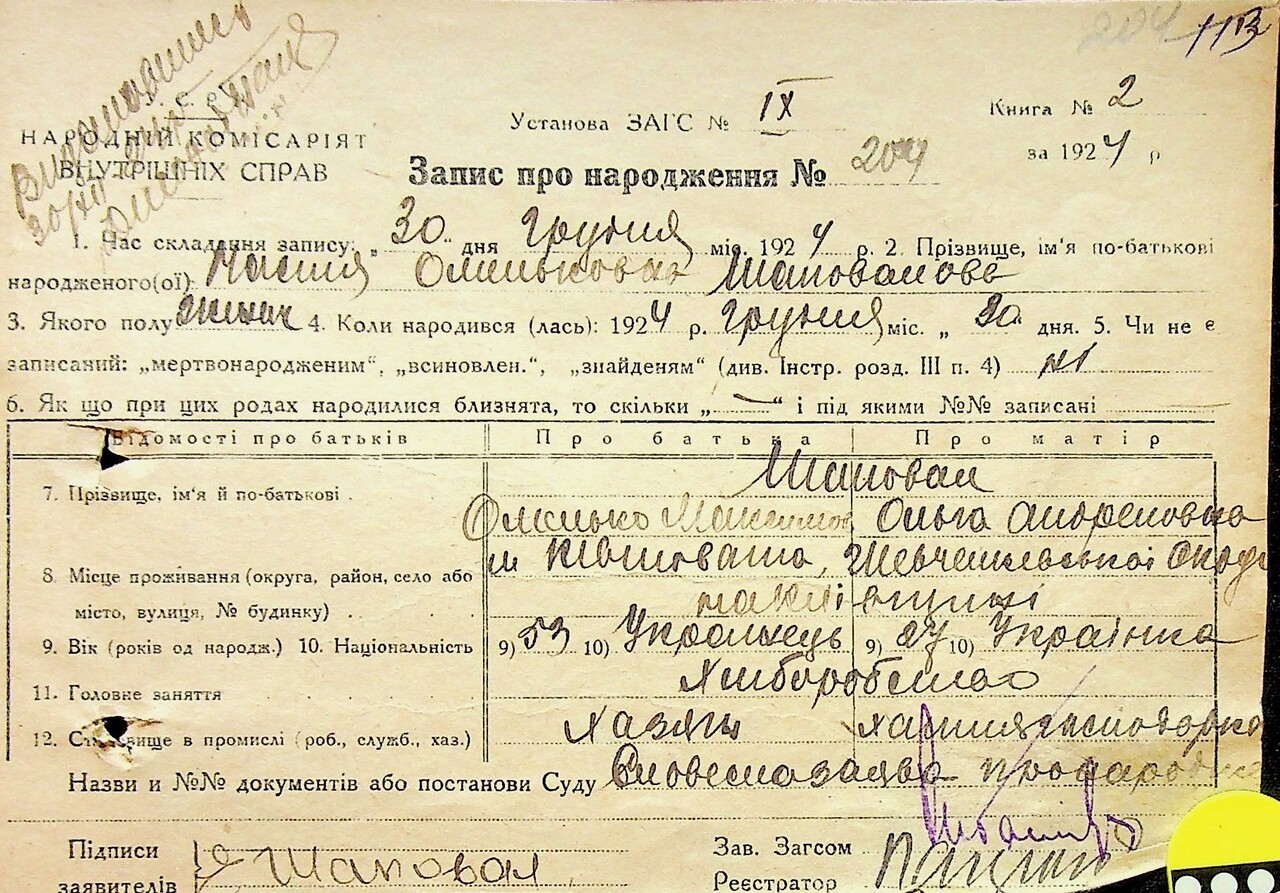 204 113
У. С. Р. Р.
НАРОДНІЙ КОМІСАРІЯТ
ВНУТРІШНІХ СПРАВ
Установа ЗАГС № IX
Книга № 2
за 1924 р
Запис про народження № 204
1. Час складання запису: „30" дня Грудня міс. 1924 р. 2. Прізвище, ім'я по-батькові
народженого(ої): Настя Омельковна Шаповалова
3. Якого полу жіноч 4. Коли народився (лась): 1924 р. Грудня міс. „ 30 дня. 5. Чи не є
записаний: „мертвонародженим", „всиновлен.", „знайденям" (див. Інстр. розд. III п. 4) ні
6. Як що при цих родах народилися близнята, то скільки „—" і під якими №№ записані
Відомості про батьків Про батька Про матір
Шаповал
7. Прізвище, ім'я й по-батькові Омелько Максимов Ольга Андреповна
8. Місце проживання (округа, район, село або м Ківшовата, Шевченківської Округи
місто, вулиця, № будинку)
9. Вік (років од народж.) 10. Національність 9) 53 10) Українець 9) 27 10) Українка
11. Головне заняття Хліборобство
12. Становище в промислі (роб., служб., хаз.) хазяїн
Назви и №№ документів або постанови Суду Словесна заява
Підписи
заявителів Шаповал
Зав. Загсом
Реєстратор